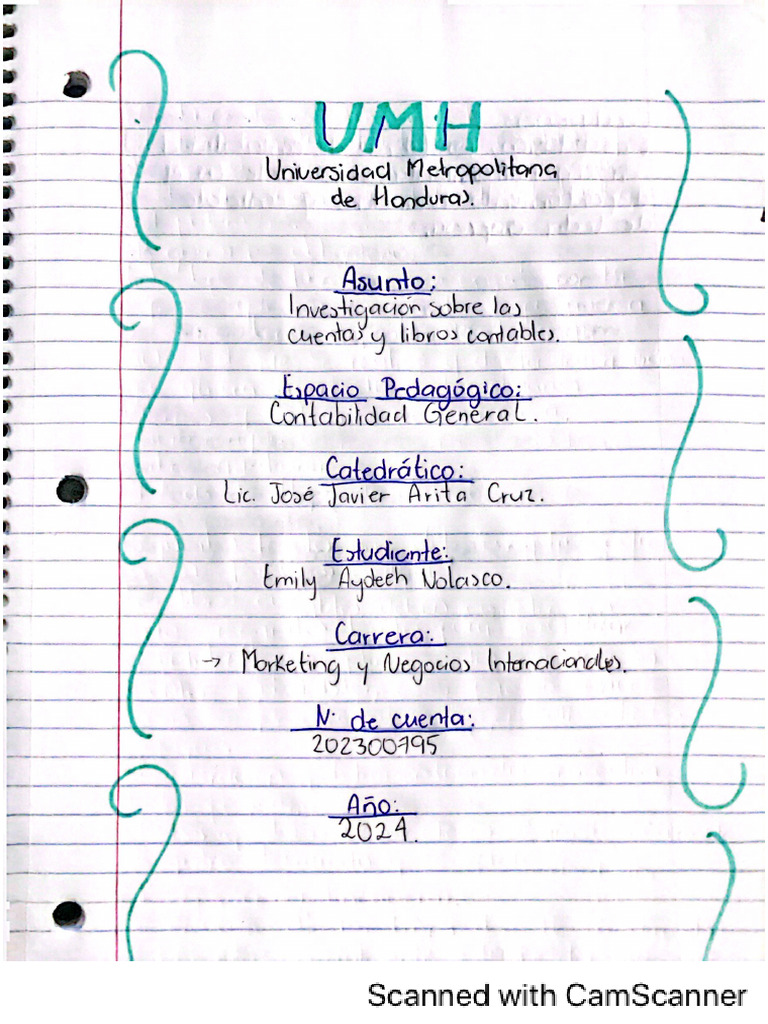 UMH
Universidad Metropolitana
de Honduras.
Asunto:
Investigación sobre las
cuentas y libros contables.
Espacio Pedagógico:
Contabilidad General.
Catedrático:
Lic. José Javier Arita Cruz.
Estudiante:
Emily Aydeeh Nolasco.
Carrera:
→ Marketing y Negocios Internacionales.
N. de cuenta:
202300795
Año:
2024.
Scanned with CamScanner